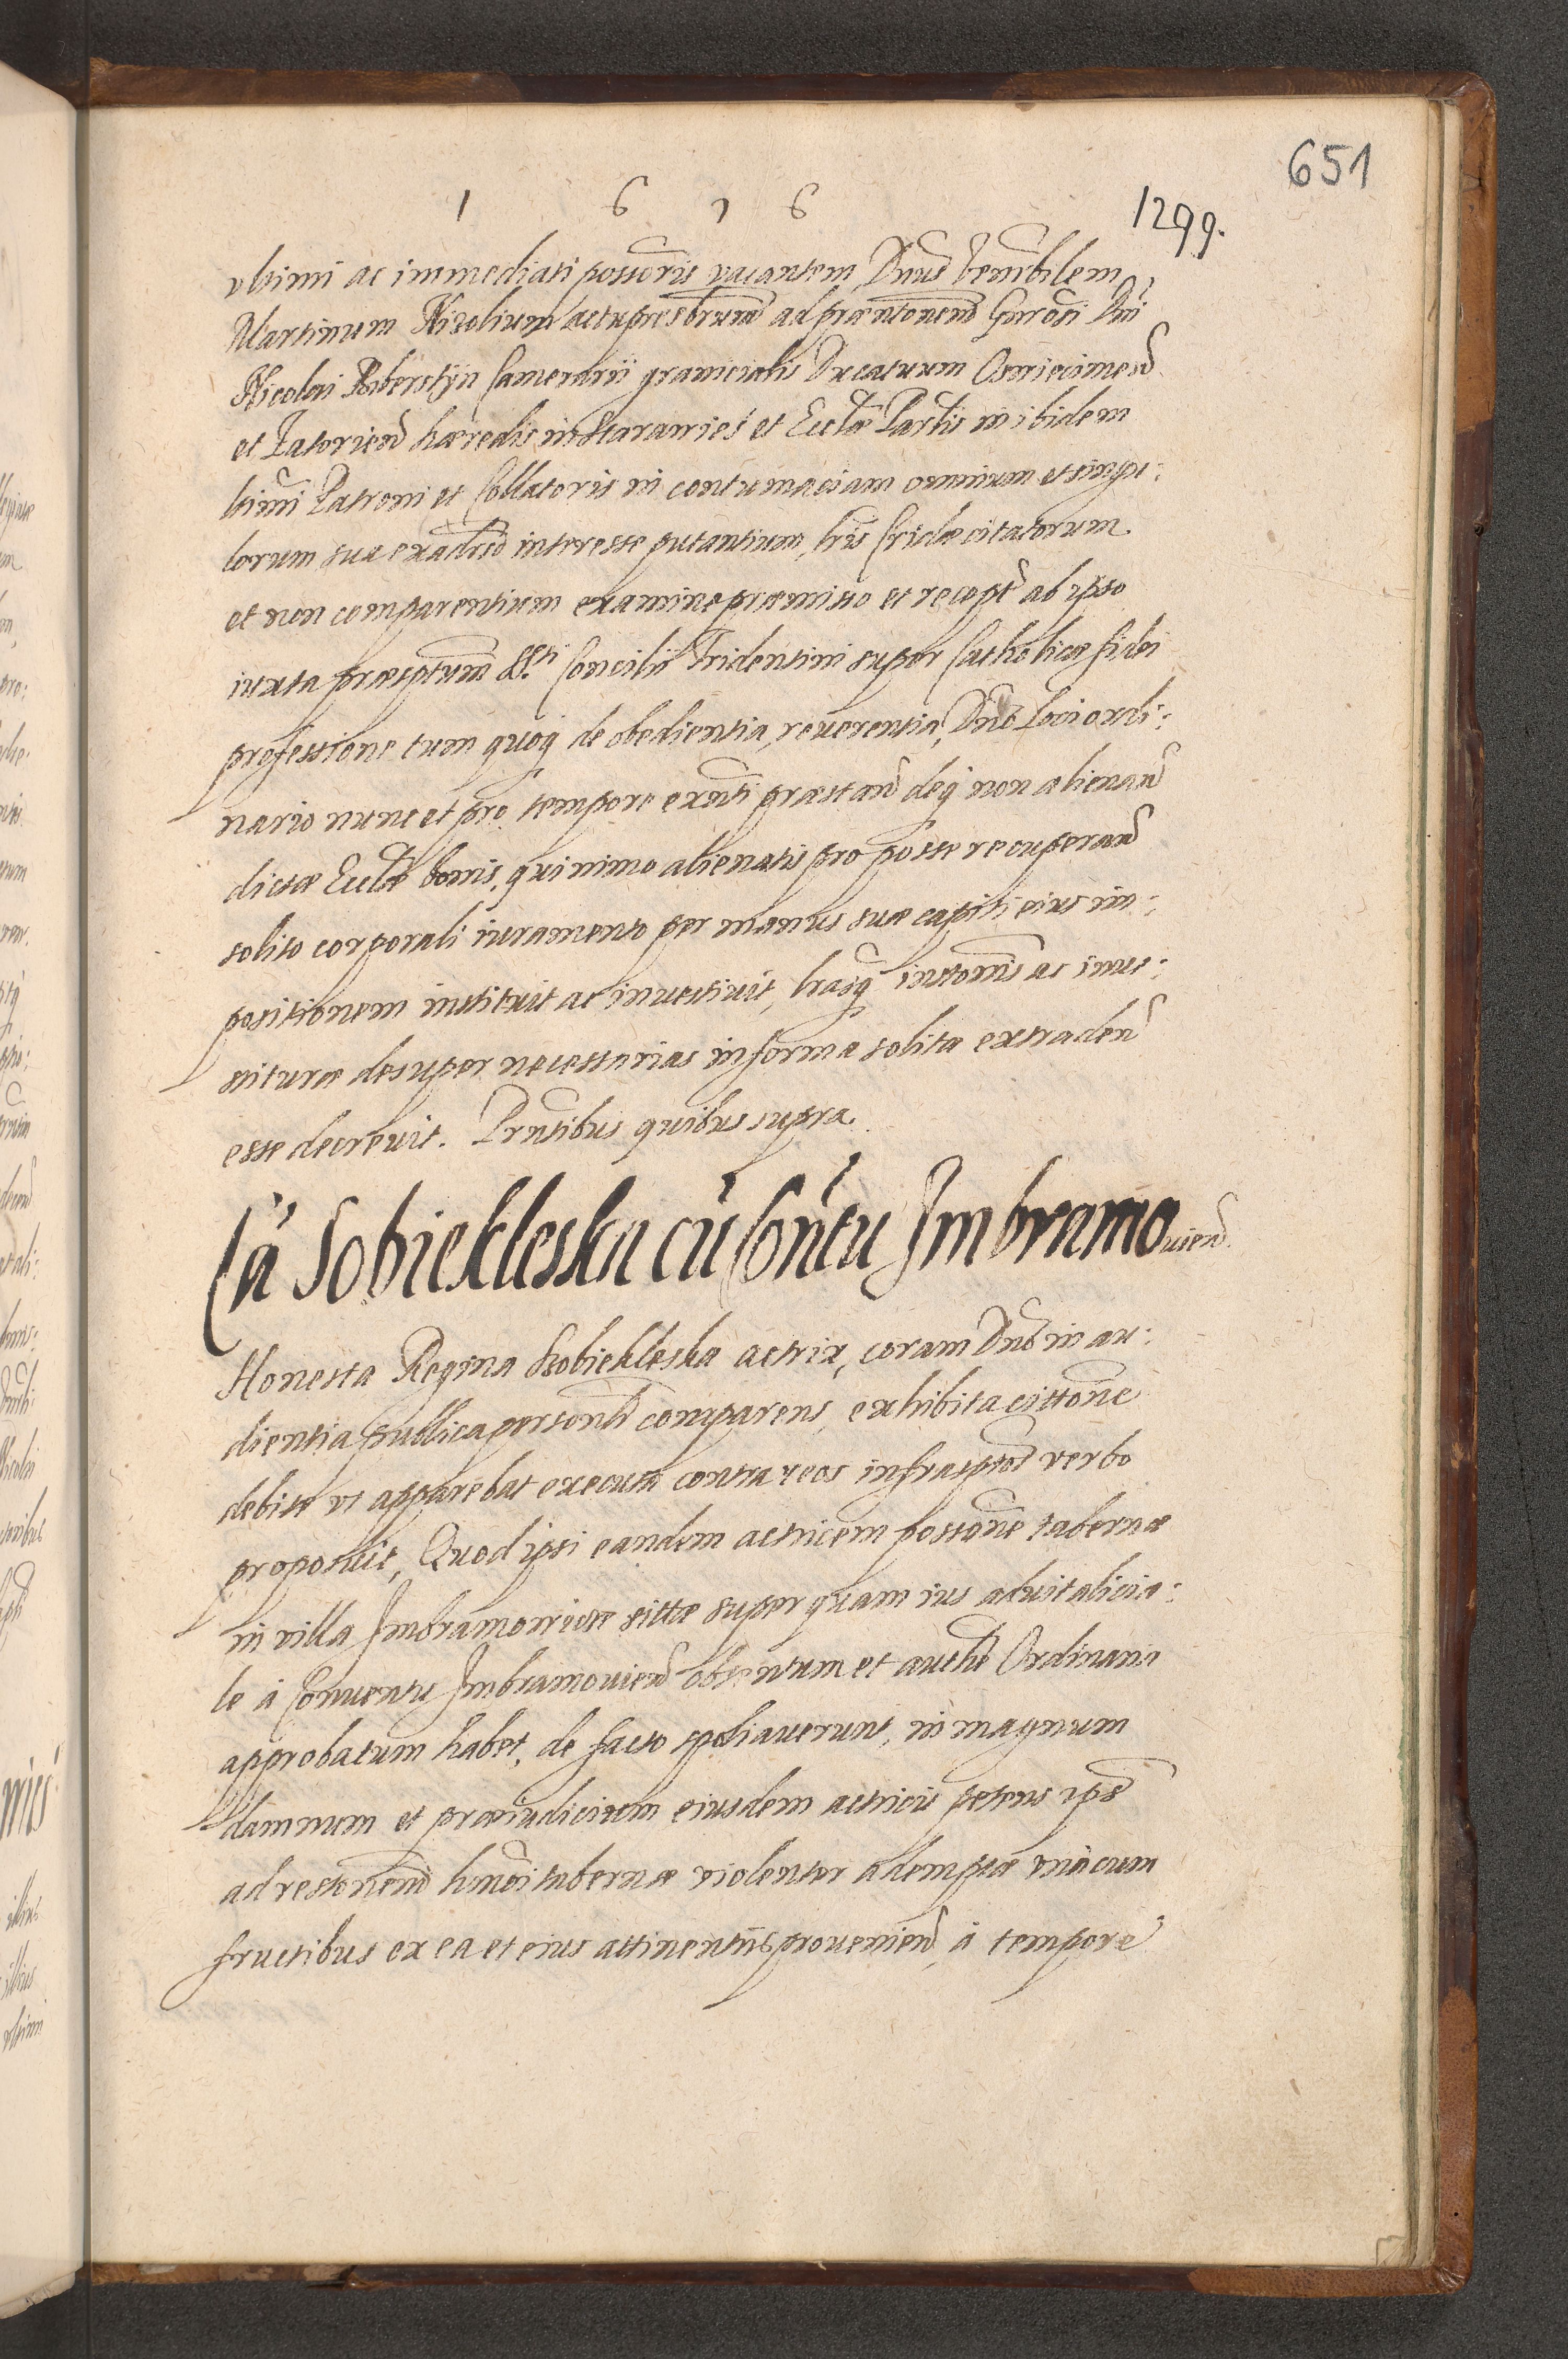 651
1 6 1 6
1299.
vltimi ac immediati possoris vacantem, Dnus Venrbilem
Martinum Nizolium actu presbrum ad præntonem Gnrosi Dni
Nicolai Poberstyn Camerarii granicialis Ducatuum Oswiecimen
et Zatorien hæredis in Starawies et Ecclæ Parlis in ibidem
ltimi Patroni et Collatoris in contumaciam omnium et singu:
lorum sua ex aduso interesse putantium, lris Cridæ citatorum
et non comparentium examine præmisso et recept ab ipso
iuxta præscptum SSti Concilii Tridentini super Catholicæ fidei
professione tum quoq de obedientia, reuerentia, Dno Loci ordi:
nario nunc et pro tempore exnti præstan deq non alienan
dictæ Ecclæ bonis, quinimo alienatis pro posse recuperan
solito corporali iuramento per manus suæ capiti eius im:
positionem instituit ac inuestiuit, lrasq instonis ac inue:
stituræ desuper necessarias in forma solita extraden
esse decreuit. Prntibus quibus supra.
Ca Sobiekleska cu Contu Imbramouien
Honesta Regina Sobiekleska actrix, coram Dno in au:
dientia publica personlr comparens, exhibita cittone
debite vt apparebat executa contra reos infrascptos verbo
proposuit, Quod ipsi eandem actricem possone tabernæ
in villa Imbramowice sittæ super quam ius aduitalicia:
le à Conuentu Imbramouien obtentum et authte Ordinaria
approbatum habet, de facto spoliauerunt, in magnum
damnum et præiudicium eiusdem actricis petens ipos
ad restonem hmoi tabernæ violenter ademptæ vnà cum
fructibus ex ea et eius attinentiis prouenien, à tempore